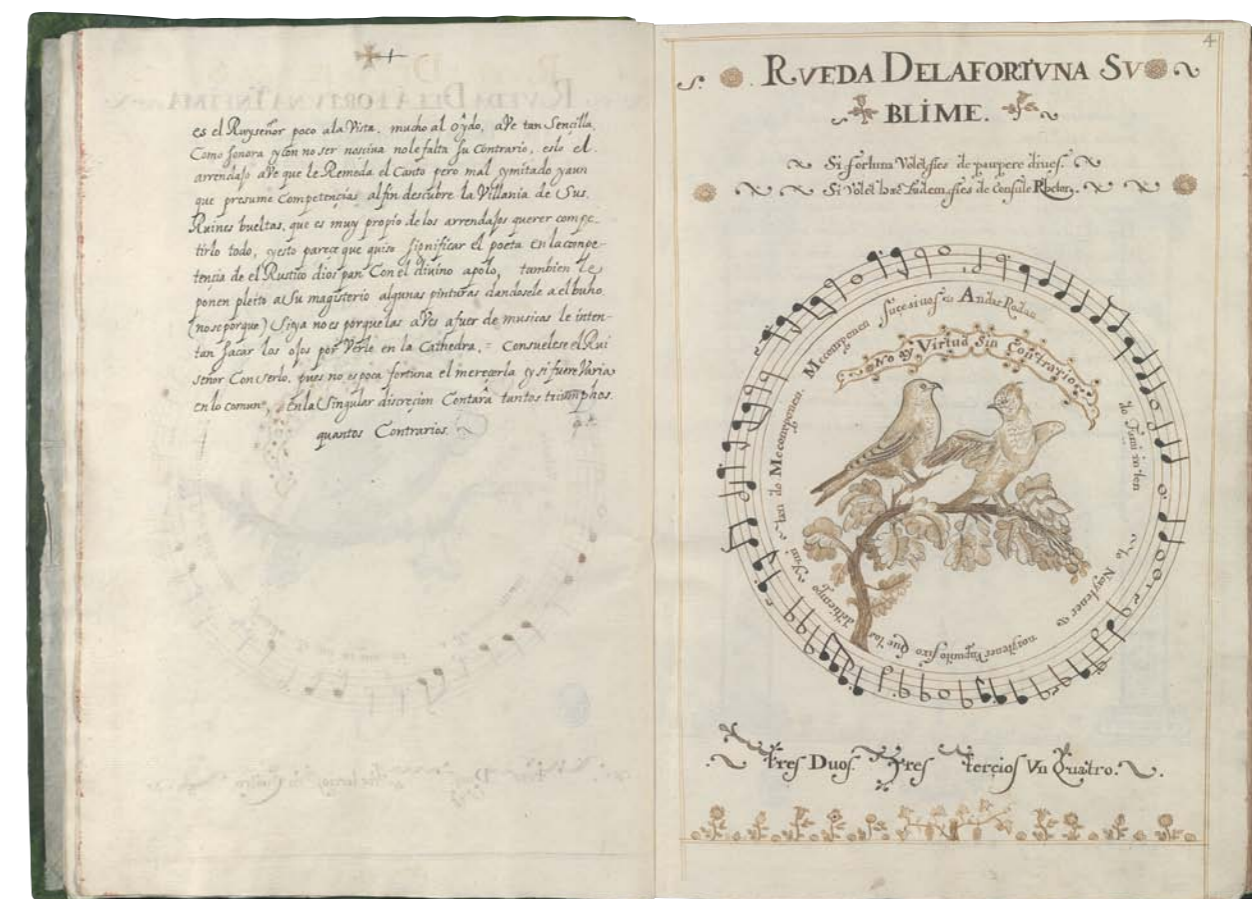 es el Ruyseñor poco ala Vista, mucho al oydo, aVe tan Sencilla,
Como sonora y con no ser nociua nole falta su Contrario, eslo el
arrendajo aVe que le Remeda el Canto pero mal ymitado yaun
que presume Competencias al fin descubre la Villania de Sus
Ruines bueltas, que es muy propio de los arrendajos querer compe-
tirlo todo, yesto pareçe que quiso significar el poeta en la compe-
tencia de el Rustico dios pan Con el diuino apolo, tambien le
ponen pleito a Su magisterio algunas pinturas dandosele a el buho
(nose porque) Si ya no es porque las aVes a fuer de musicas le inten-
tan sacar los ojos por Verle en la Cathedra, = Consuelese el Rui
señor Con serlo, pues no es poca fortuna el mereçerla y si fuere Varia
en lo comun, en la Singular discreçion Contarà tantos triumphos
quantos Contrarios.
4
RVEDA DELAFORTVNA SV
BLIME.
Si fortuna Volet fies de paupere diues.
Si Volet hæc eadem fies de Consule Rhetor.
Me componen sucesiuos Andar Rodan
do
to No y tener
no y tener Vn punto fixo Que los
del tiempo Y mi
tan do Me componen.
No ay Virtud Sin Contrario
Tres Duos. Tres terçios Vn Quatro.